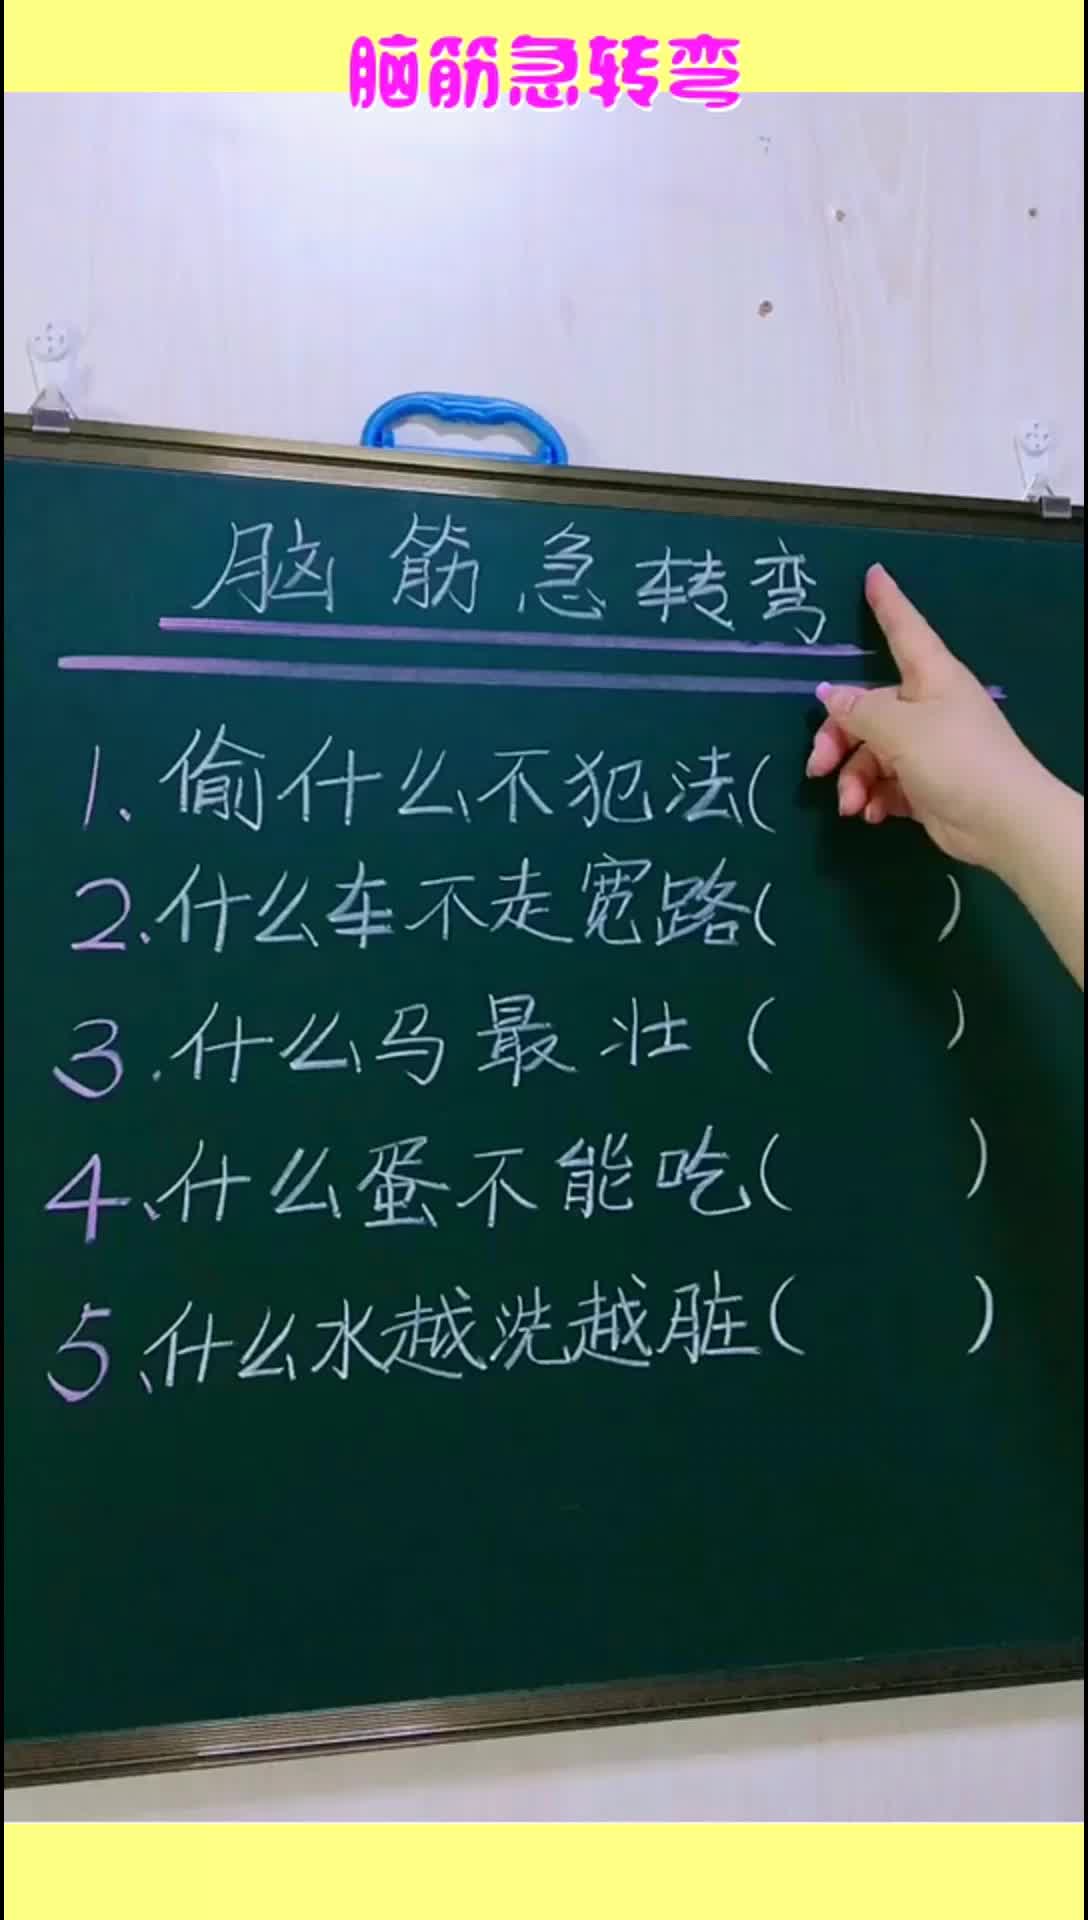 脑筋急转弯
脑筋急转弯
1.偷什么不犯法(
2.什么车不走宽路( )
3.什么马最壮( )
4、什么蛋不能吃( )
5、什么水越洗越脏( )